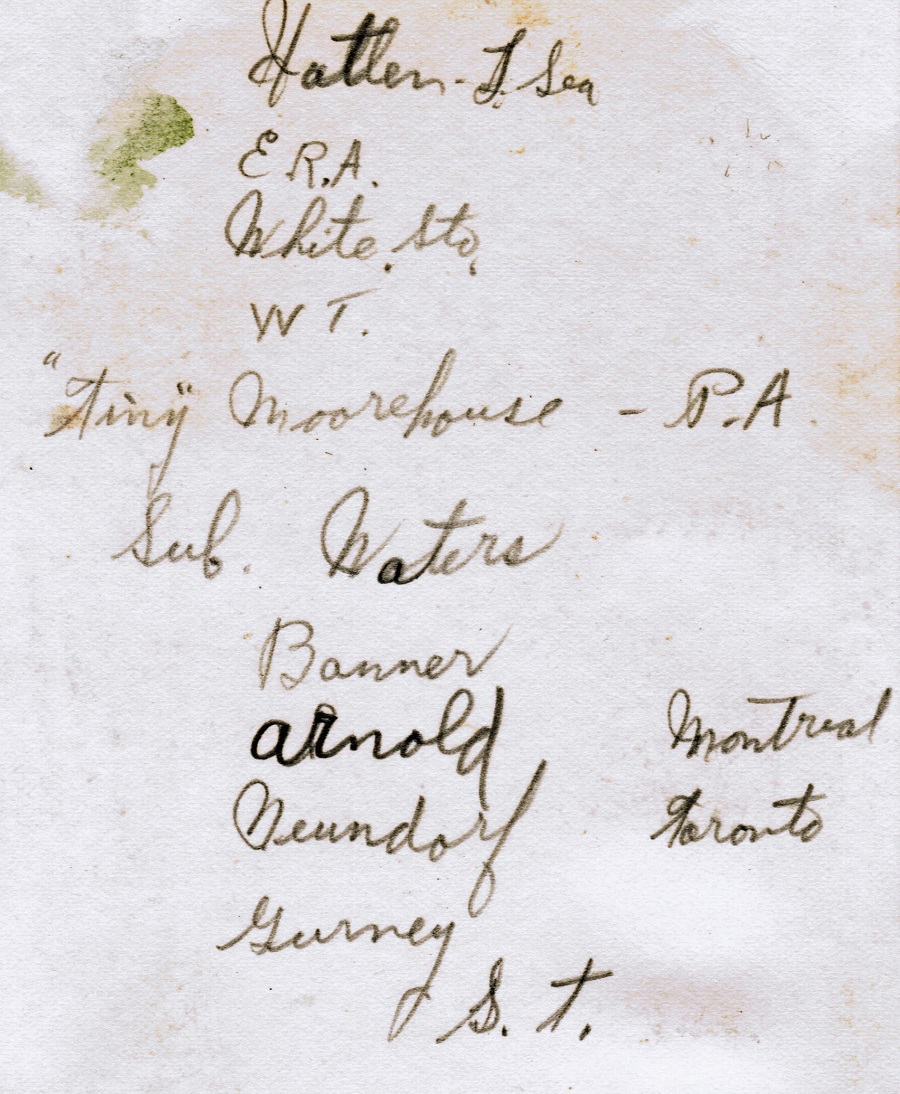 Hatlen - L. Sea
E.R.A.
White. Sto.
W T.
"Tiny" Moorehouse - P.A.
Sub. Waters
Banner
Arnold Montreal
Neundorf Toronto
Gurney
S. T.